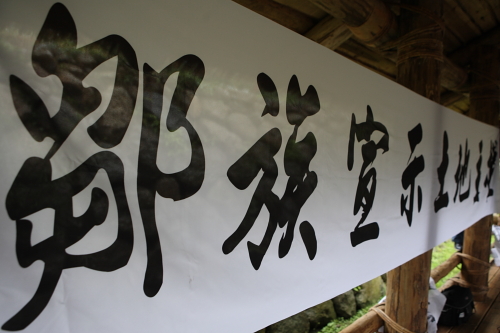 鄒族宣示土地主權